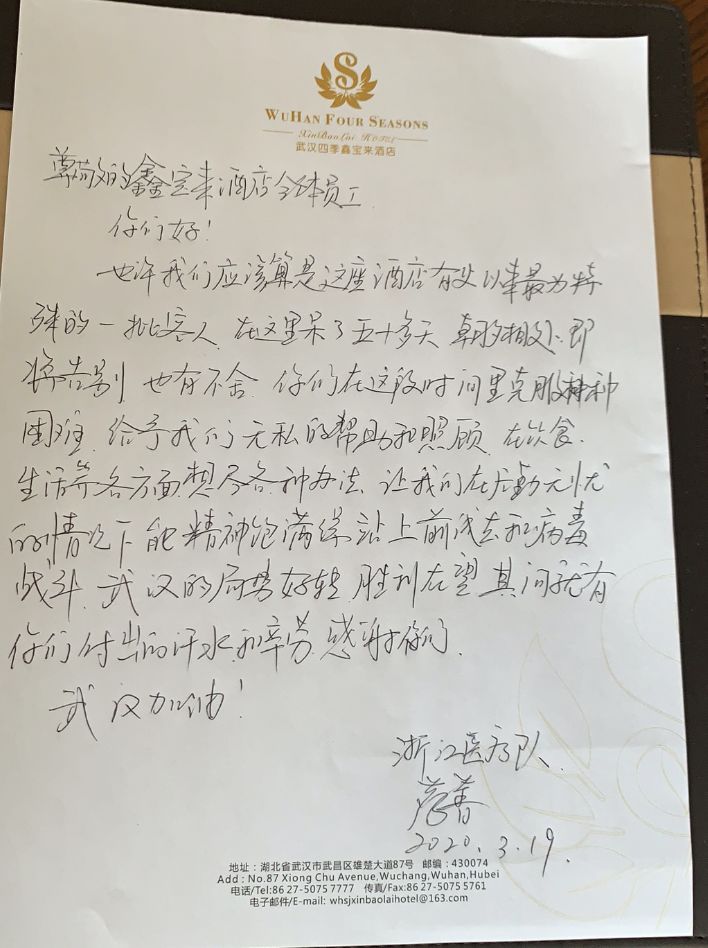 S
WUHAN FOUR SEASONS
XinBaoLai HOTEL
武汉四季鑫宝来酒店
尊敬的鑫宝来酒店全体员工
你们好！
也许我们应该算是这座酒店有史以来最为特
殊的一批客人 在这里呆了五十多天 朝夕相处、即
将告别 也有不舍 你们在这段时间里克服种种
困难 给予我们无私的帮助和照顾 在饮食、
生活等各方面想尽各种办法 让我们在后勤无忧
的情况下能精神饱满 站上前线去和病毒
战斗. 武汉的局势好转 胜利在望 其间就有
你们付出的汗水和辛劳 感谢你们
武汉加油！
浙江医疗队
2020.3.19.
地址：湖北省武汉市武昌区雄楚大道87号 邮编：430074
Add：No.87 Xiong Chu Avenue,Wuchang,Wuhan,Hubei
电话/Tel:86 27-5075 7777 传真/Fax:86 27-5075 5761
电子邮件/E-mail: whsjxinbaolaihotel@163.com